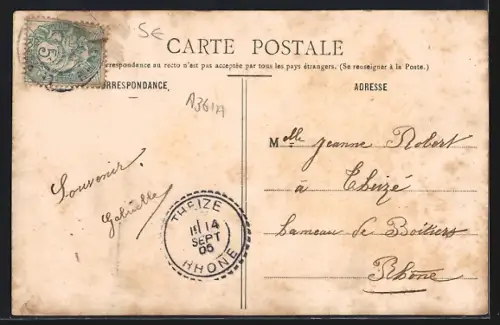 5€
CARTE POSTALE
correspondance au recto n'est pas acceptée par tous les pays étrangers. (Se renseigner à la Poste.)
CORRESPONDANCE,
ADRESSE
A361A
Melle Jeanne Robert
à Theizé
hameau de Boitiers
Rhône
Souvenir.
Gabrielle
THEIZE
14
SEPT
05
RHONE